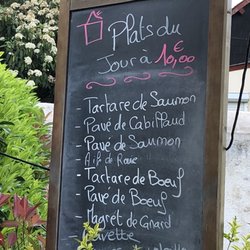 Plats du
Jour à 10,00€
- Tartare de Saumon
- Pavé de Cabillaud
- Pavé de Saumon
- Aile de Raie
- Tartare de Boeuf
- Pavé de Boeuf
- Magret de Canard
- Bavette